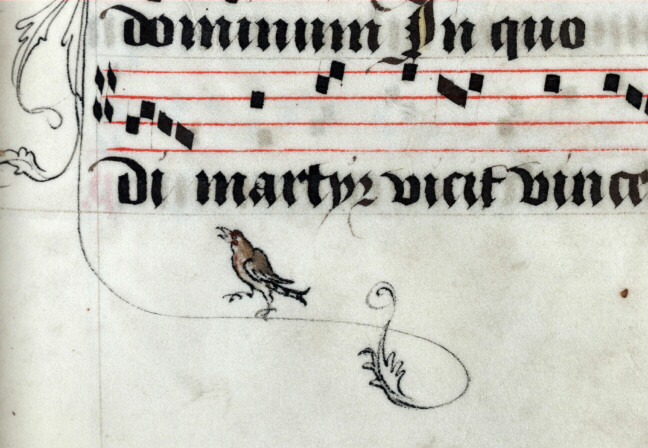 dominum In quo
di martyr vicit vince